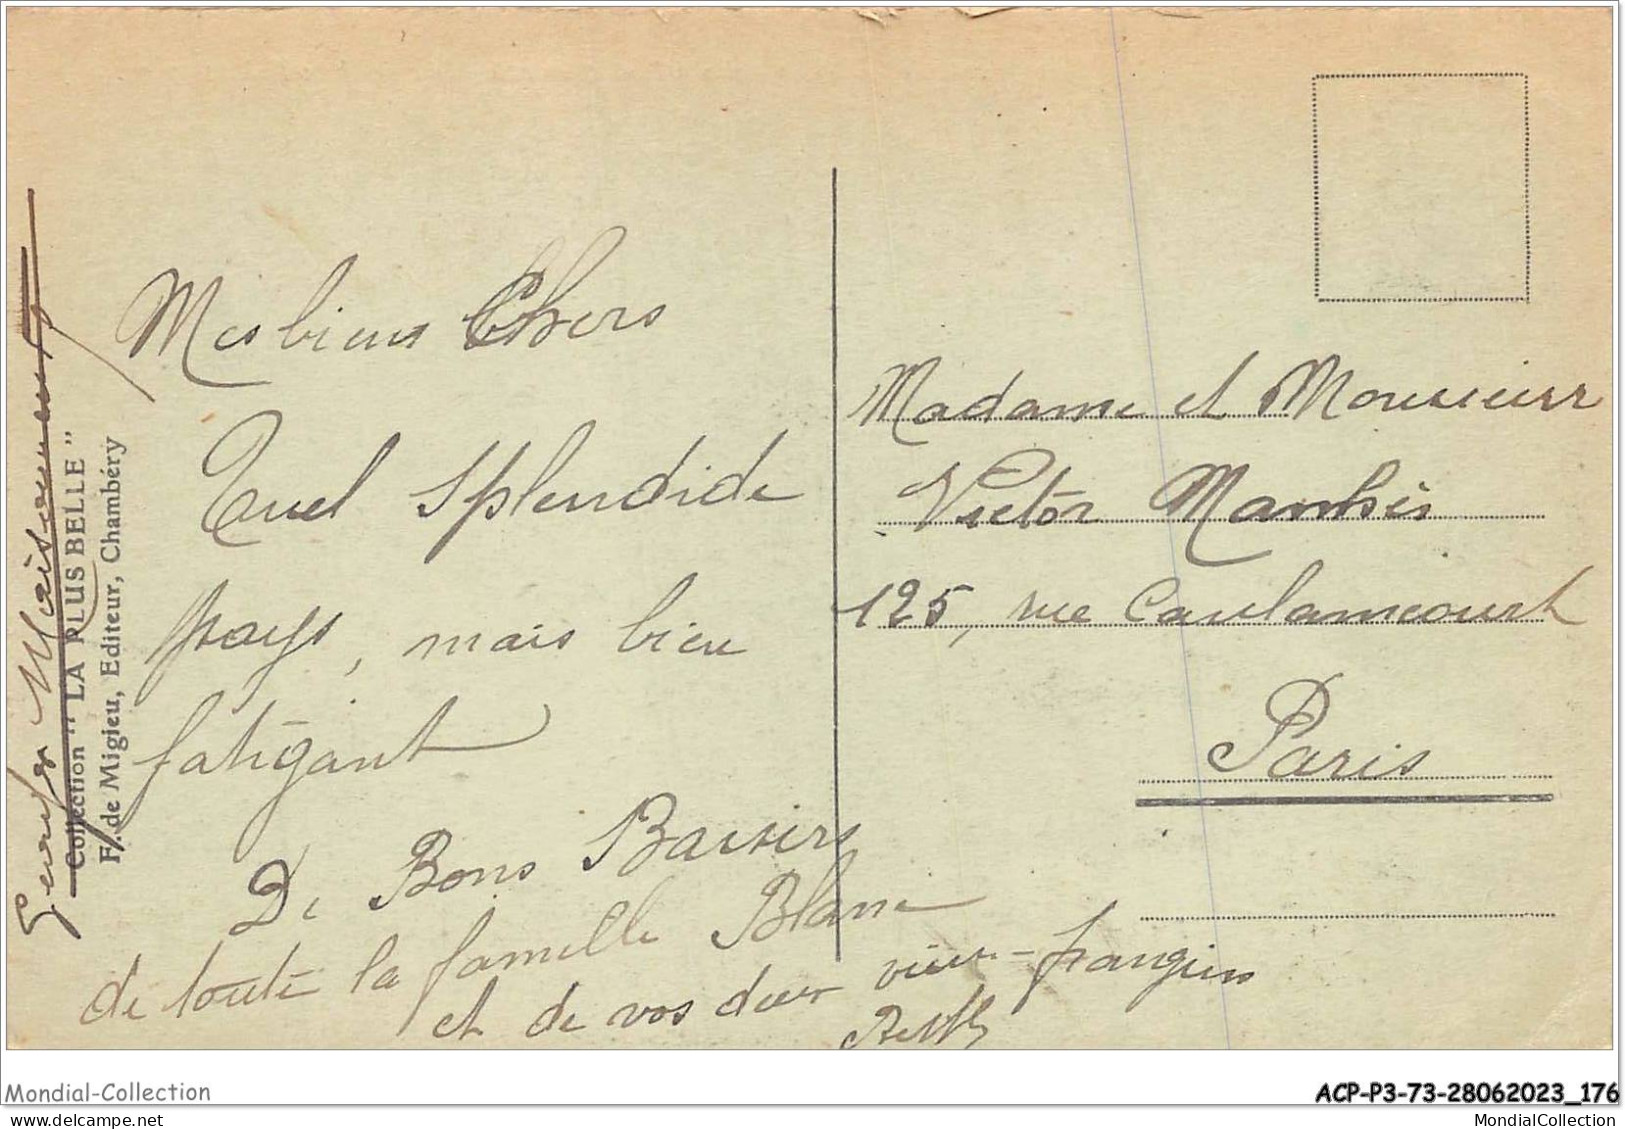 Mes biens Chers
Quel splendide
pays, mais bien
fatigant
De Bons Baisers
de toute la famille Blanc
et de vos deux vieux frangins
Madame et Monsieur
Victor Manhès
125, rue Caulaincourt
Paris
Collection "LA PLUS BELLE"
F. de Migieu, Editeur, Chambéry
Mondial-Collection
ACP-P3-73-28062023_176
MondialCollection